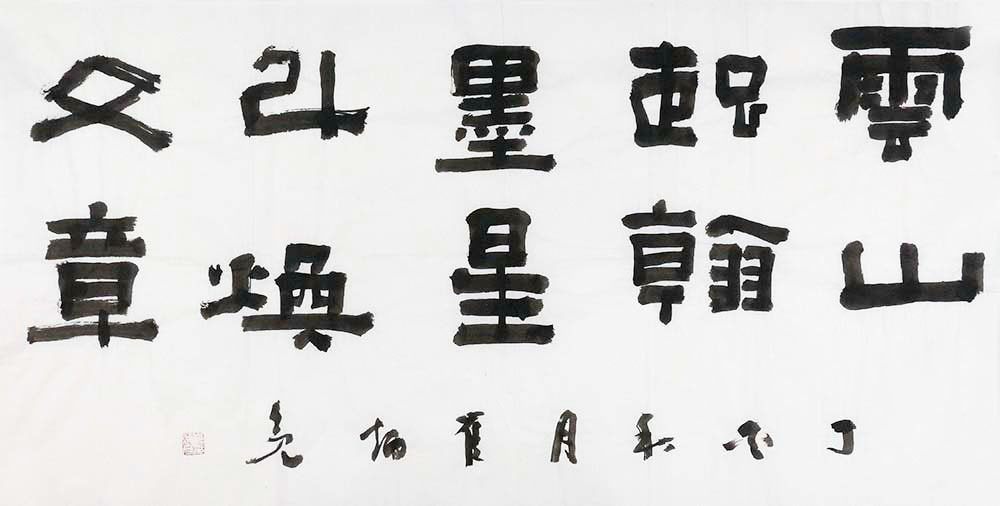 雲山
起翰
墨星
斗煥
文章
丁酉秋月